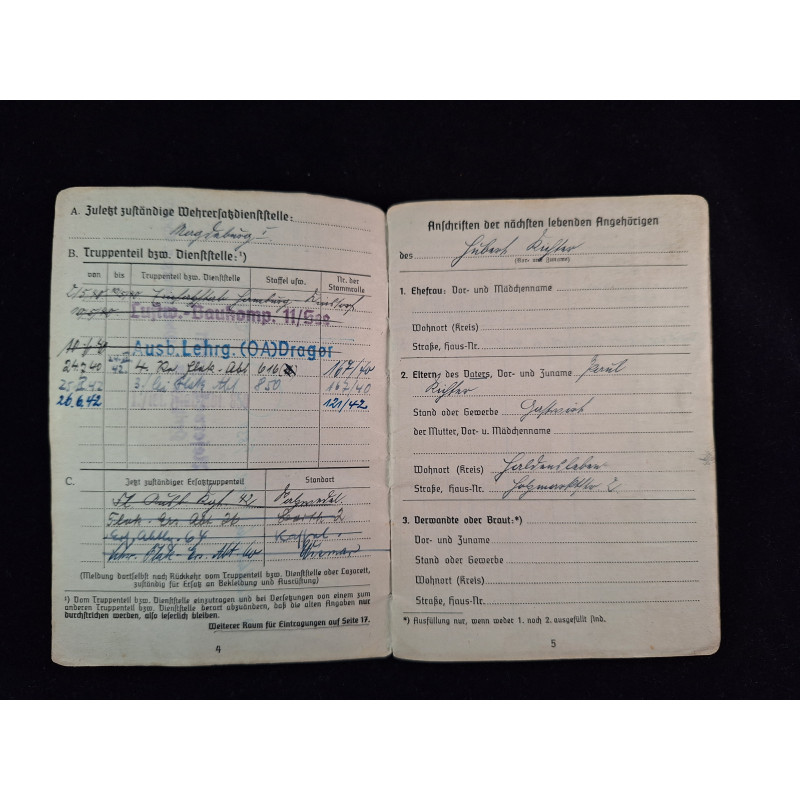 A. Zuletzt zuständige Wehrersatzdienststelle:
Magdeburg I
B. Truppenteil bzw. Dienststelle:¹)
von bis Truppenteil bzw. Dienststelle Staffel usw. Nr. der Stammrolle
Luftw.-Baukomp. 11/See
Ausb. Lehrg. (OA) Dragor
24.7.40 4. Flak-Abt 616 167/40
42. 3. Flak Abt 850 167/40
26.6.42 121/42
C. Jetzt zuständiger Ersatztruppenteil Standort
42 Salzwedel
Flak-Ers. Abt. 26 Barth 2
64
Flak-Ers. Abt 60 Wismar
(Meldung dortselbst nach Rückkehr vom Truppenteil bzw. Dienststelle oder Lazarett,
zuständig für Ersatz an Bekleidung und Ausrüstung)
¹) Vom Truppenteil bzw. Dienststelle einzutragen und bei Versetzungen von einem zum
anderen Truppenteil bzw. Dienststelle derart abzuändern, daß die alten Angaben nur
durchstrichen werden, also leserlich bleiben.
Weiterer Raum für Eintragungen auf Seite 17.
4
Anschriften der nächsten lebenden Angehörigen
des Hubert Richter
(Vor- und Zuname)
1. Ehefrau: Vor- und Mädchenname
Wohnort (Kreis)
Straße, Haus-Nr.
2. Eltern: des Vaters, Vor- und Zuname Paul
Richter
Stand oder Gewerbe Gastwirt
der Mutter, Vor- u. Mädchenname
Wohnort (Kreis) Haldensleben
Straße, Haus-Nr. Holzmarktstr 2
3. Verwandte oder Braut:*)
Vor- und Zuname
Stand oder Gewerbe
Wohnort (Kreis)
Straße, Haus-Nr.
*) Ausfüllung nur, wenn weder 1. noch 2. ausgefüllt sind.
5